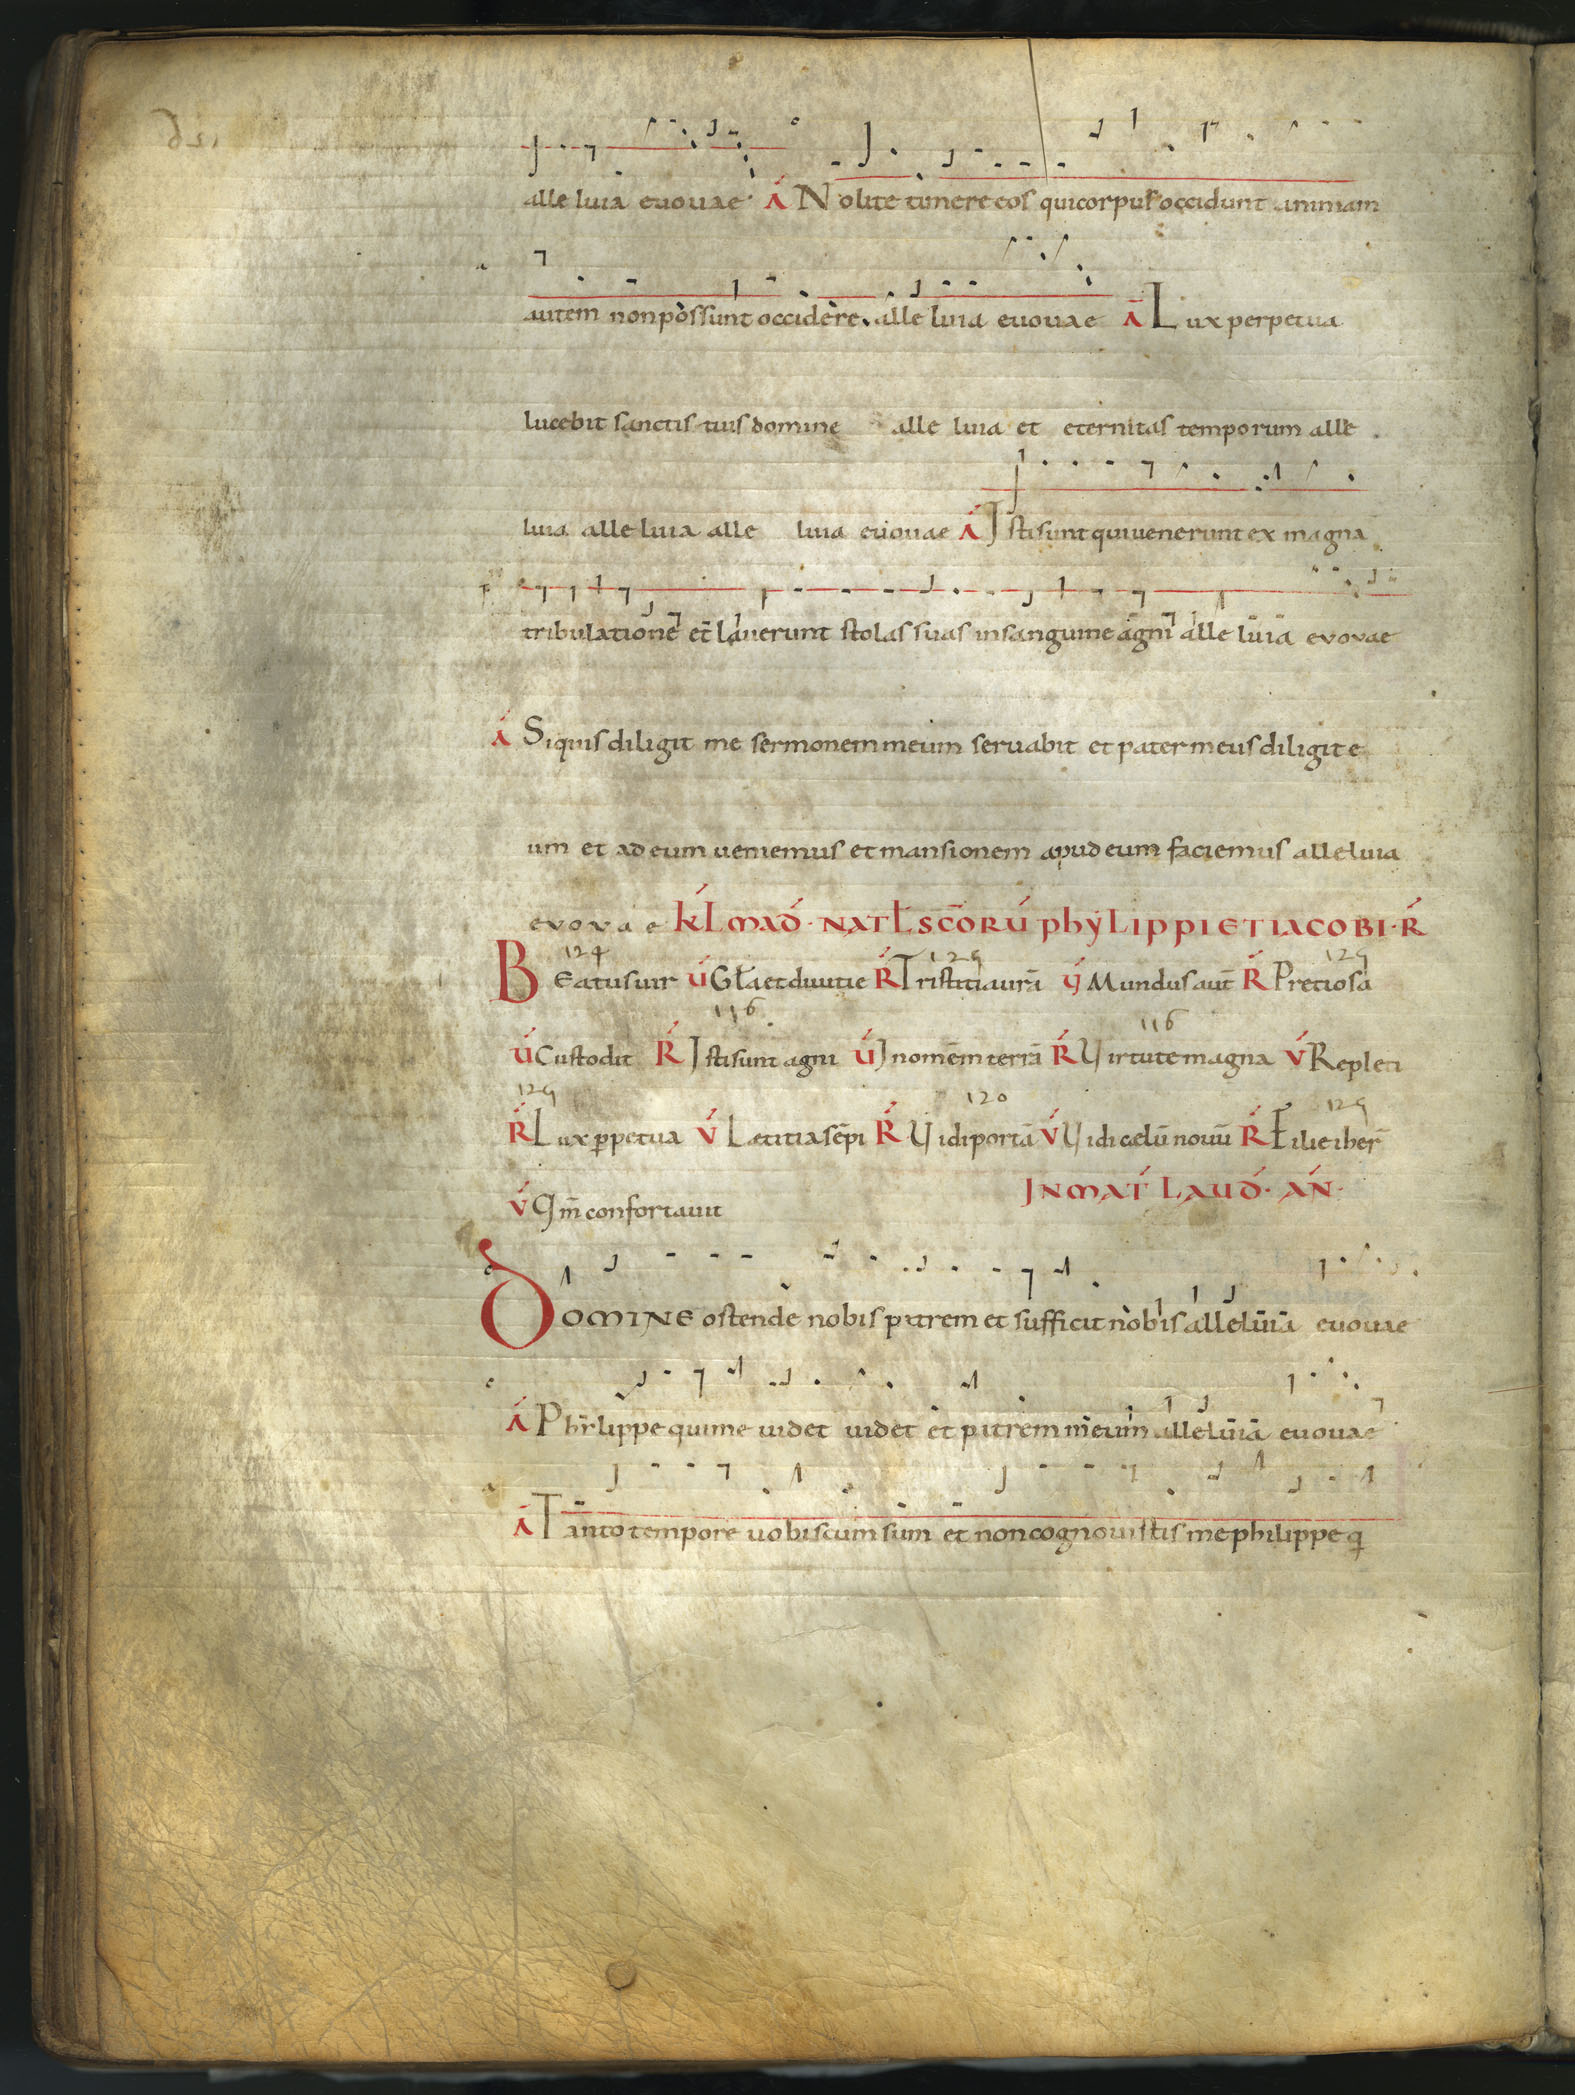 alle luia euouae A Nolite timere eos qui corpus occidunt animam
autem non possunt occidere. alle luia euouae A Lux perpetua
lucebit sanctis tuis domine alle luia et eternitas temporum alle
luia alle luia alle luia euouae A Isti sunt qui uenerunt ex magna
tribulatione et lauerunt stolas suas in sanguine agni alle luia evovae
A Siquis diligit me sermonem meum seruabit et pater meus diligit e
um et ad eum ueniemus et mansionem apud eum faciemus alleluia
evovae KL MAD. NATL SCORŪ PHYLIPPI ET IACOBI. R
124 129 129
BEatus uir V Gla et diuitie R Tristitia urā V Mundus aut R Pretiosa
116 116
V Custodit R Isti sunt agni V In omēm terrā R Virtute magna V Repleti
129 120 129
R Lux ppetua V Laetitia sēpi R Vidi portā V Vidi caelū nouū R Filie iher
V Qm confortauit IN MAT LAUD. AN.
DOMINE ostende nobis patrem et sufficit nobis alleluia euouae
A Philippe qui me uidet uidet et patrem meum alleluia euouae
A Tanto tempore uobiscum sum et non cognouistis me philippe q